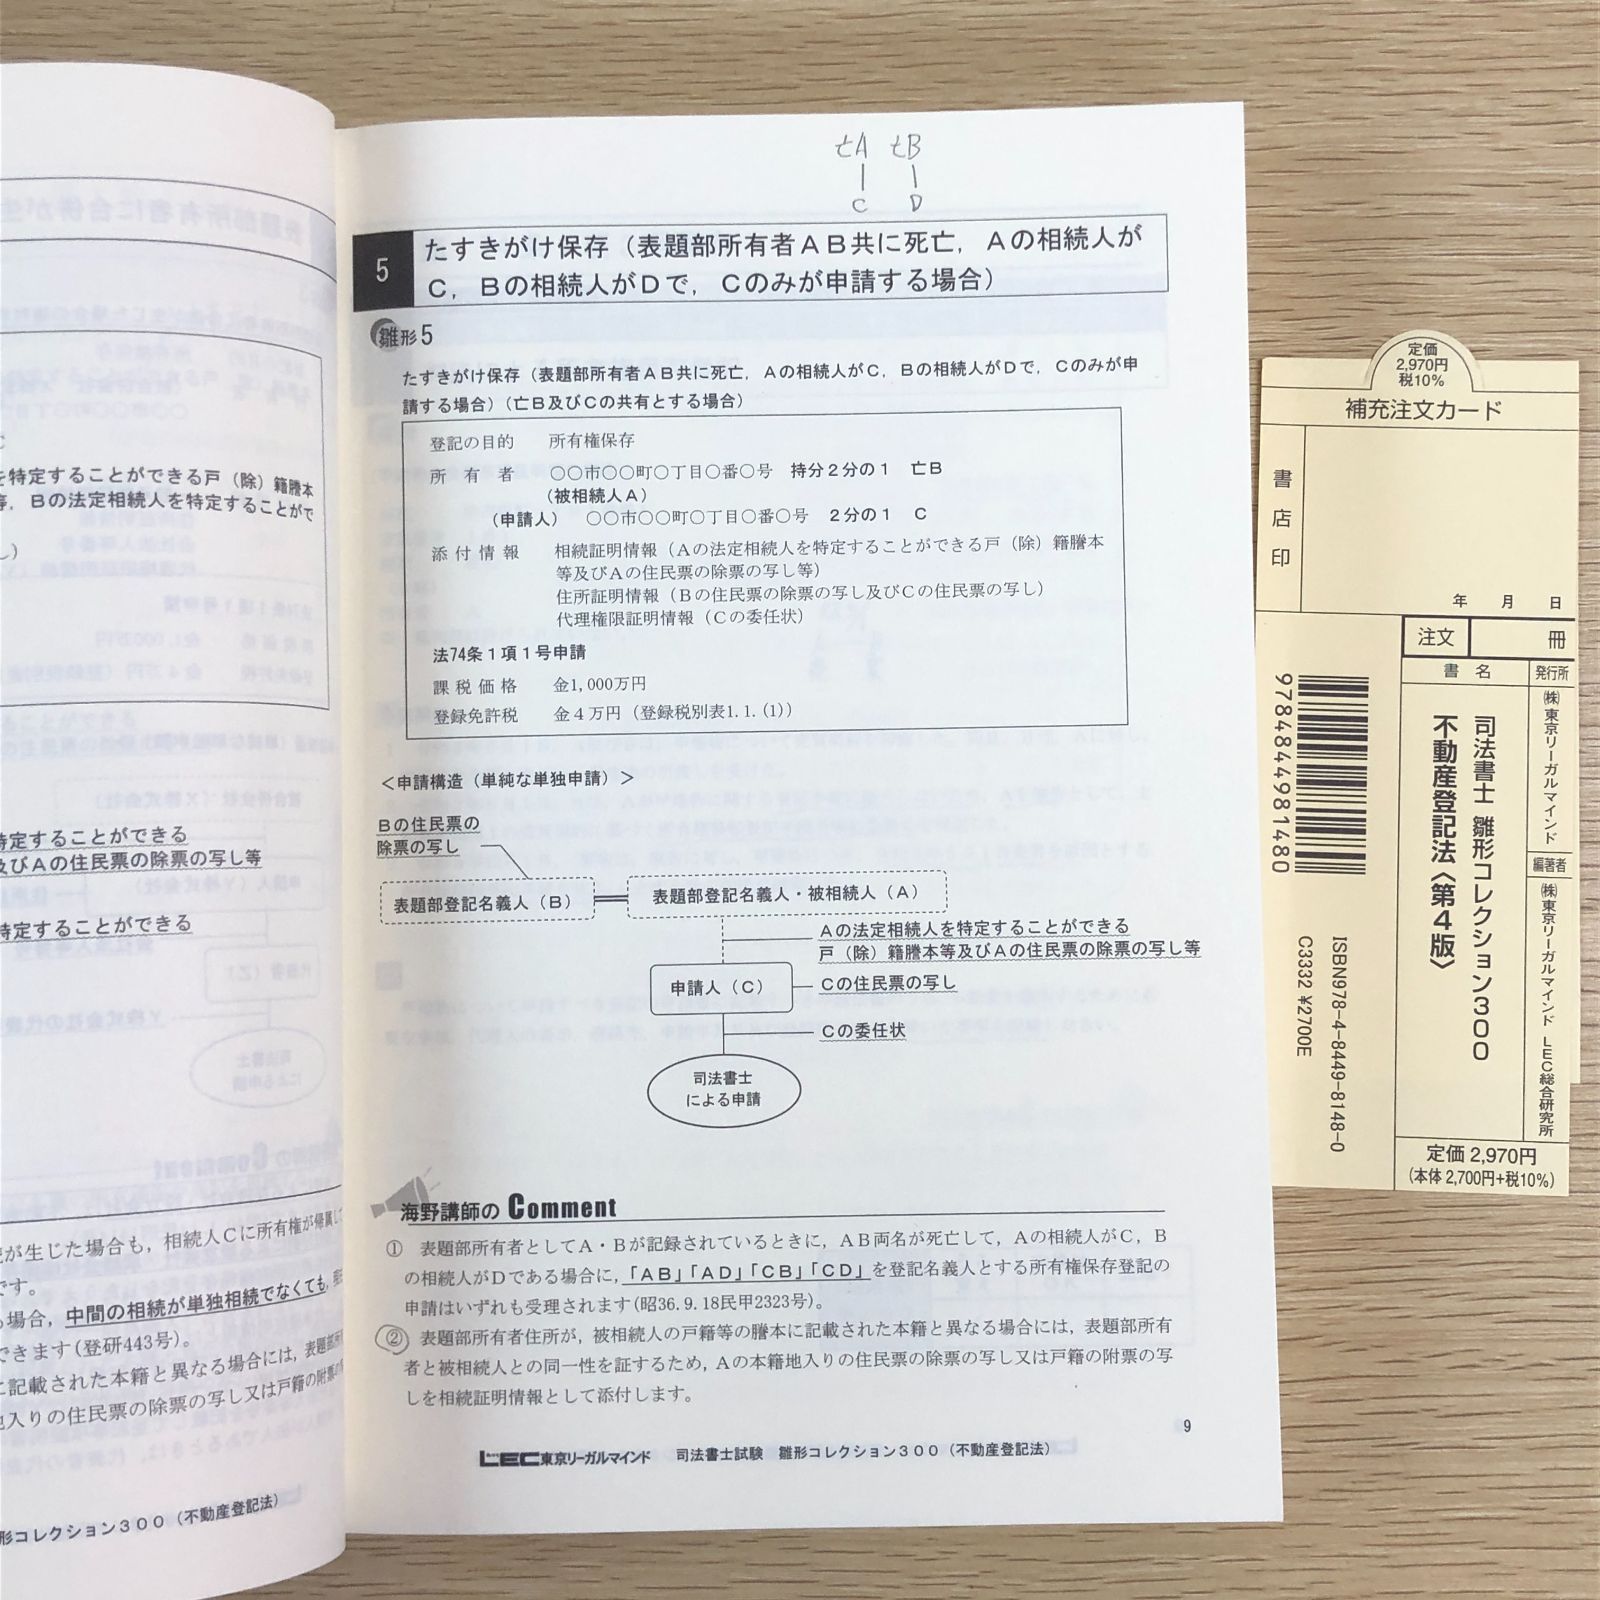 tA tB
C D
5
たすきがけ保存（表題部所有者ＡＢ共に死亡，Ａの相続人が
Ｃ，Ｂの相続人がＤで，Ｃのみが申請する場合）
雛形5
たすきがけ保存（表題部所有者ＡＢ共に死亡，Ａの相続人がＣ，Ｂの相続人がＤで，Ｃのみが申
請する場合）（亡Ｂ及びＣの共有とする場合）
登記の目的　所有権保存
所有者　○○市○○町○丁目○番○号　持分２分の１　亡Ｂ
（被相続人Ａ）
（申請人）　○○市○○町○丁目○番○号　２分の１　Ｃ
添付情報　相続証明情報（Ａの法定相続人を特定することができる戸（除）籍謄本
等及びＡの住民票の除票の写し等）
住所証明情報（Ｂの住民票の除票の写し及びＣの住民票の写し）
代理権限証明情報（Ｃの委任状）
法74条１項１号申請
課税価格　金1,000万円
登録免許税　金４万円（登録税別表1.1.(1)）
＜申請構造（単純な単独申請）＞
Ｂの住民票の
除票の写し
表題部登記名義人（Ｂ）
表題部登記名義人・被相続人（Ａ）
Ａの法定相続人を特定することができる
戸（除）籍謄本等及びＡの住民票の除票の写し等
申請人（Ｃ）
Ｃの住民票の写し
Ｃの委任状
司法書士
による申請
海野講師の Comment
①　表題部所有者としてＡ・Ｂが記録されているときに，ＡＢ両名が死亡して，Ａの相続人がＣ，Ｂ
の相続人がＤである場合に，「ＡＢ」「ＡＤ」「ＣＢ」「ＣＤ」を登記名義人とする所有権保存登記の
申請はいずれも受理されます（昭36.9.18民甲2323号）。
②　表題部所有者住所が，被相続人の戸籍等の謄本に記載された本籍と異なる場合には，表題部所有
者と被相続人との同一性を証するため，Ａの本籍地入りの住民票の除票の写し又は戸籍の附票の写
しを相続証明情報として添付します。
9
LEC東京リーガルマインド　司法書士試験　雛形コレクション３００（不動産登記法）
を特定することができる戸（除）籍謄本
等，Ｂの法定相続人を特定することがで
特定することができる
及びＡの住民票の除票の写し等
特定することができる
が生じた場合も，相続人Ｃに所有権が帰属し
です。
場合，中間の相続が単独相続でなくても，
できます（登研443号）。
に記載された本籍と異なる場合には，表題部
地入りの住民票の除票の写し又は戸籍の附票の
形コレクション３００（不動産登記法）
定価
2,970円
税10%
補充注文カード
書店印
年　月　日
注文　冊
書名
司法書士 雛形コレクション300
不動産登記法〈第４版〉
発行所
㈱東京リーガルマインド
編著者
㈱東京リーガルマインド LEC総合研究所
9784844981480
ISBN978-4-8449-8148-0
C3332 ¥2700E
定価 2,970円
（本体 2,700円+税10%）